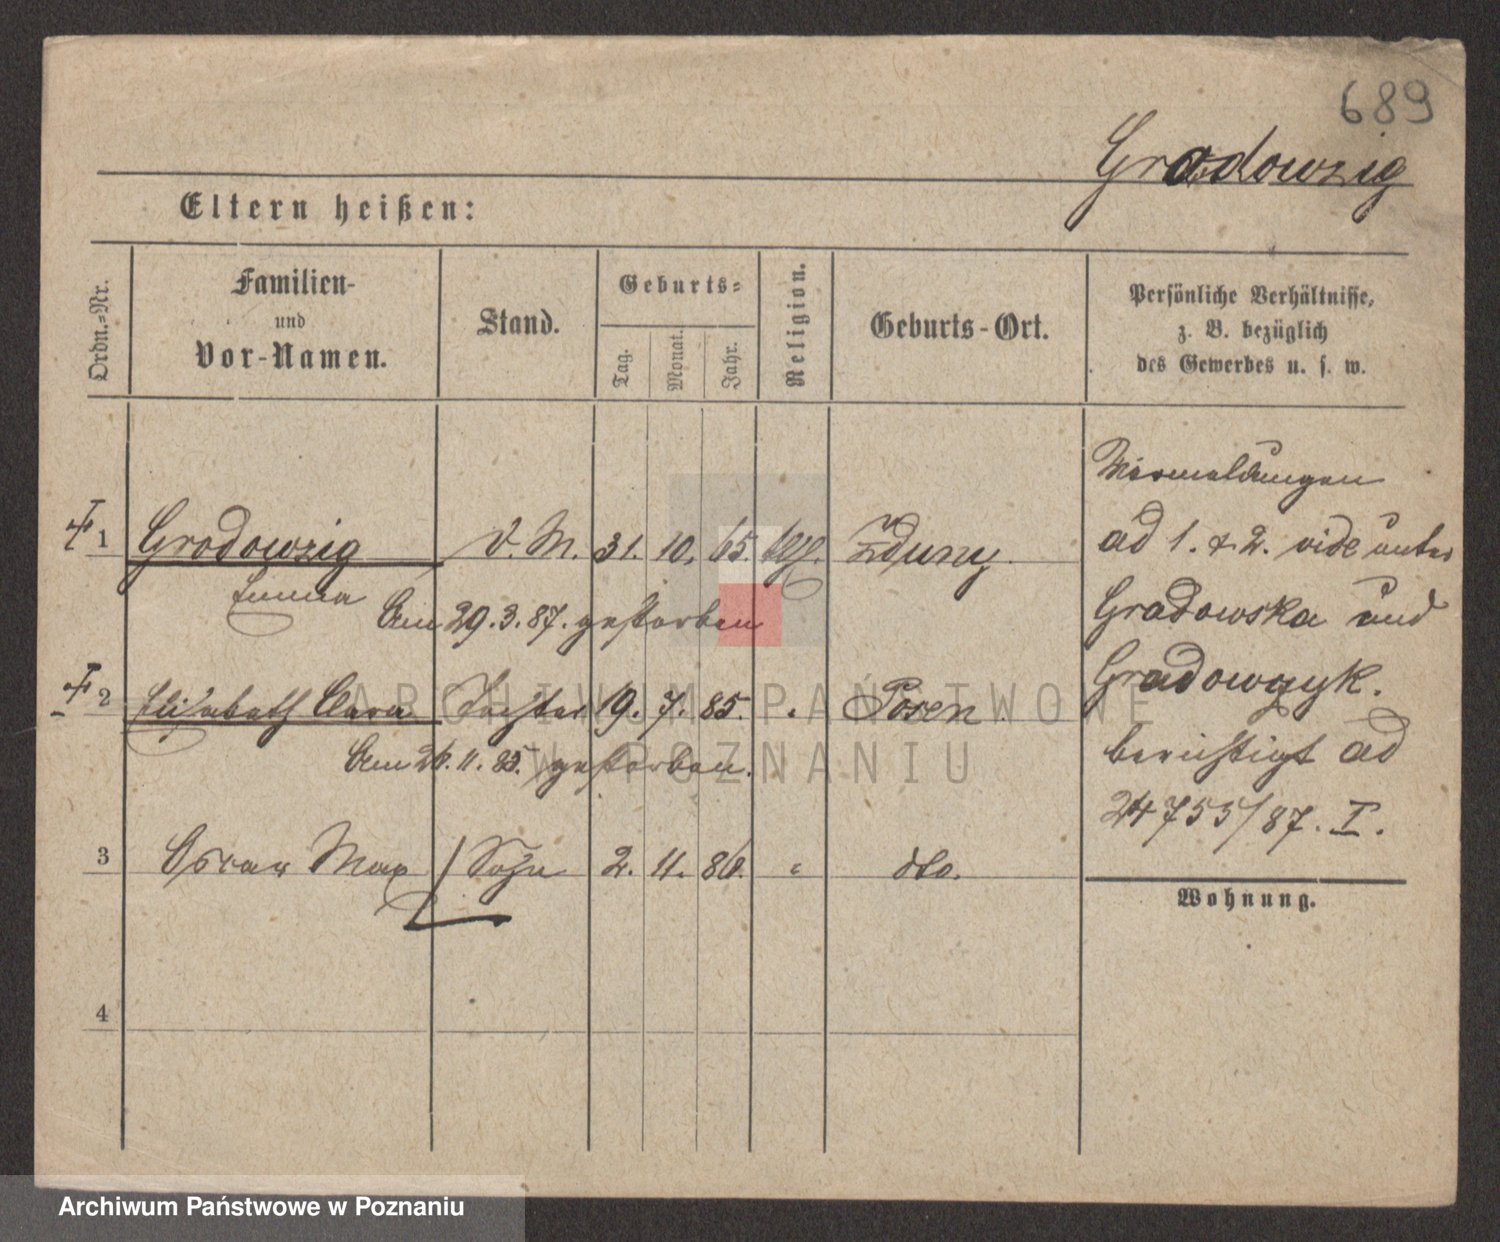 689
Gradowzig
Eltern heißen:
Ordn.-Nr.
Familien-
und
Vor-Namen.
Stand.
Geburts-
Tag.
Monat.
Jahr.
Religion.
Geburts-Ort.
Persönliche Verhältnisse,
z. B. bezüglich
des Gewerbes u. s. w.
1 Gradowzig 31. 10. 65. Zduny
Emma
Am 29.3.87. gestorben
2 Elisabeth Clara Tochter 19. 7. 85. " Posen
Am 26.11.85. gestorben.
3 Oscar Max / Sohn 2. 11. 86. " dto.
4
ad 1. & 2. vide unter
Gradowska und
Gradowczyk.
berichtigt ad
24755/87. I.
Wohnung.
ARCHIWUM PAŃSTWOWE
W POZNANIU
Archiwum Państwowe w Poznaniu